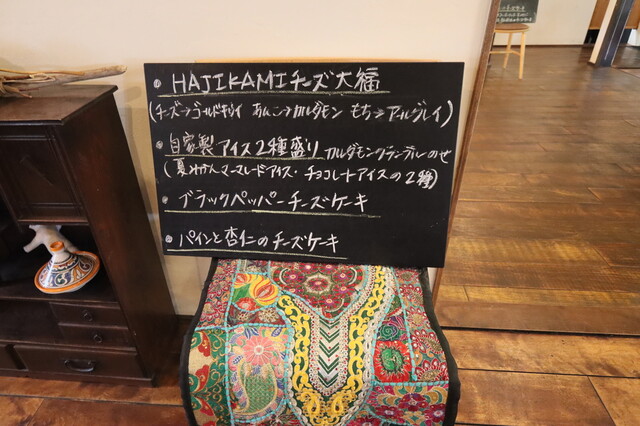 • HAJIKAMIチーズ大福
(チーズ→ゴールドキウイ あんこ→カルダモン もち→アールグレイ)
• 自家製アイス2種盛り カルダモングランブルのせ
(夏みかんマーマレードアイス・チョコレートアイスの2種)
• ブラックペッパーチーズケーキ
• パインと杏仁のチーズケーキ